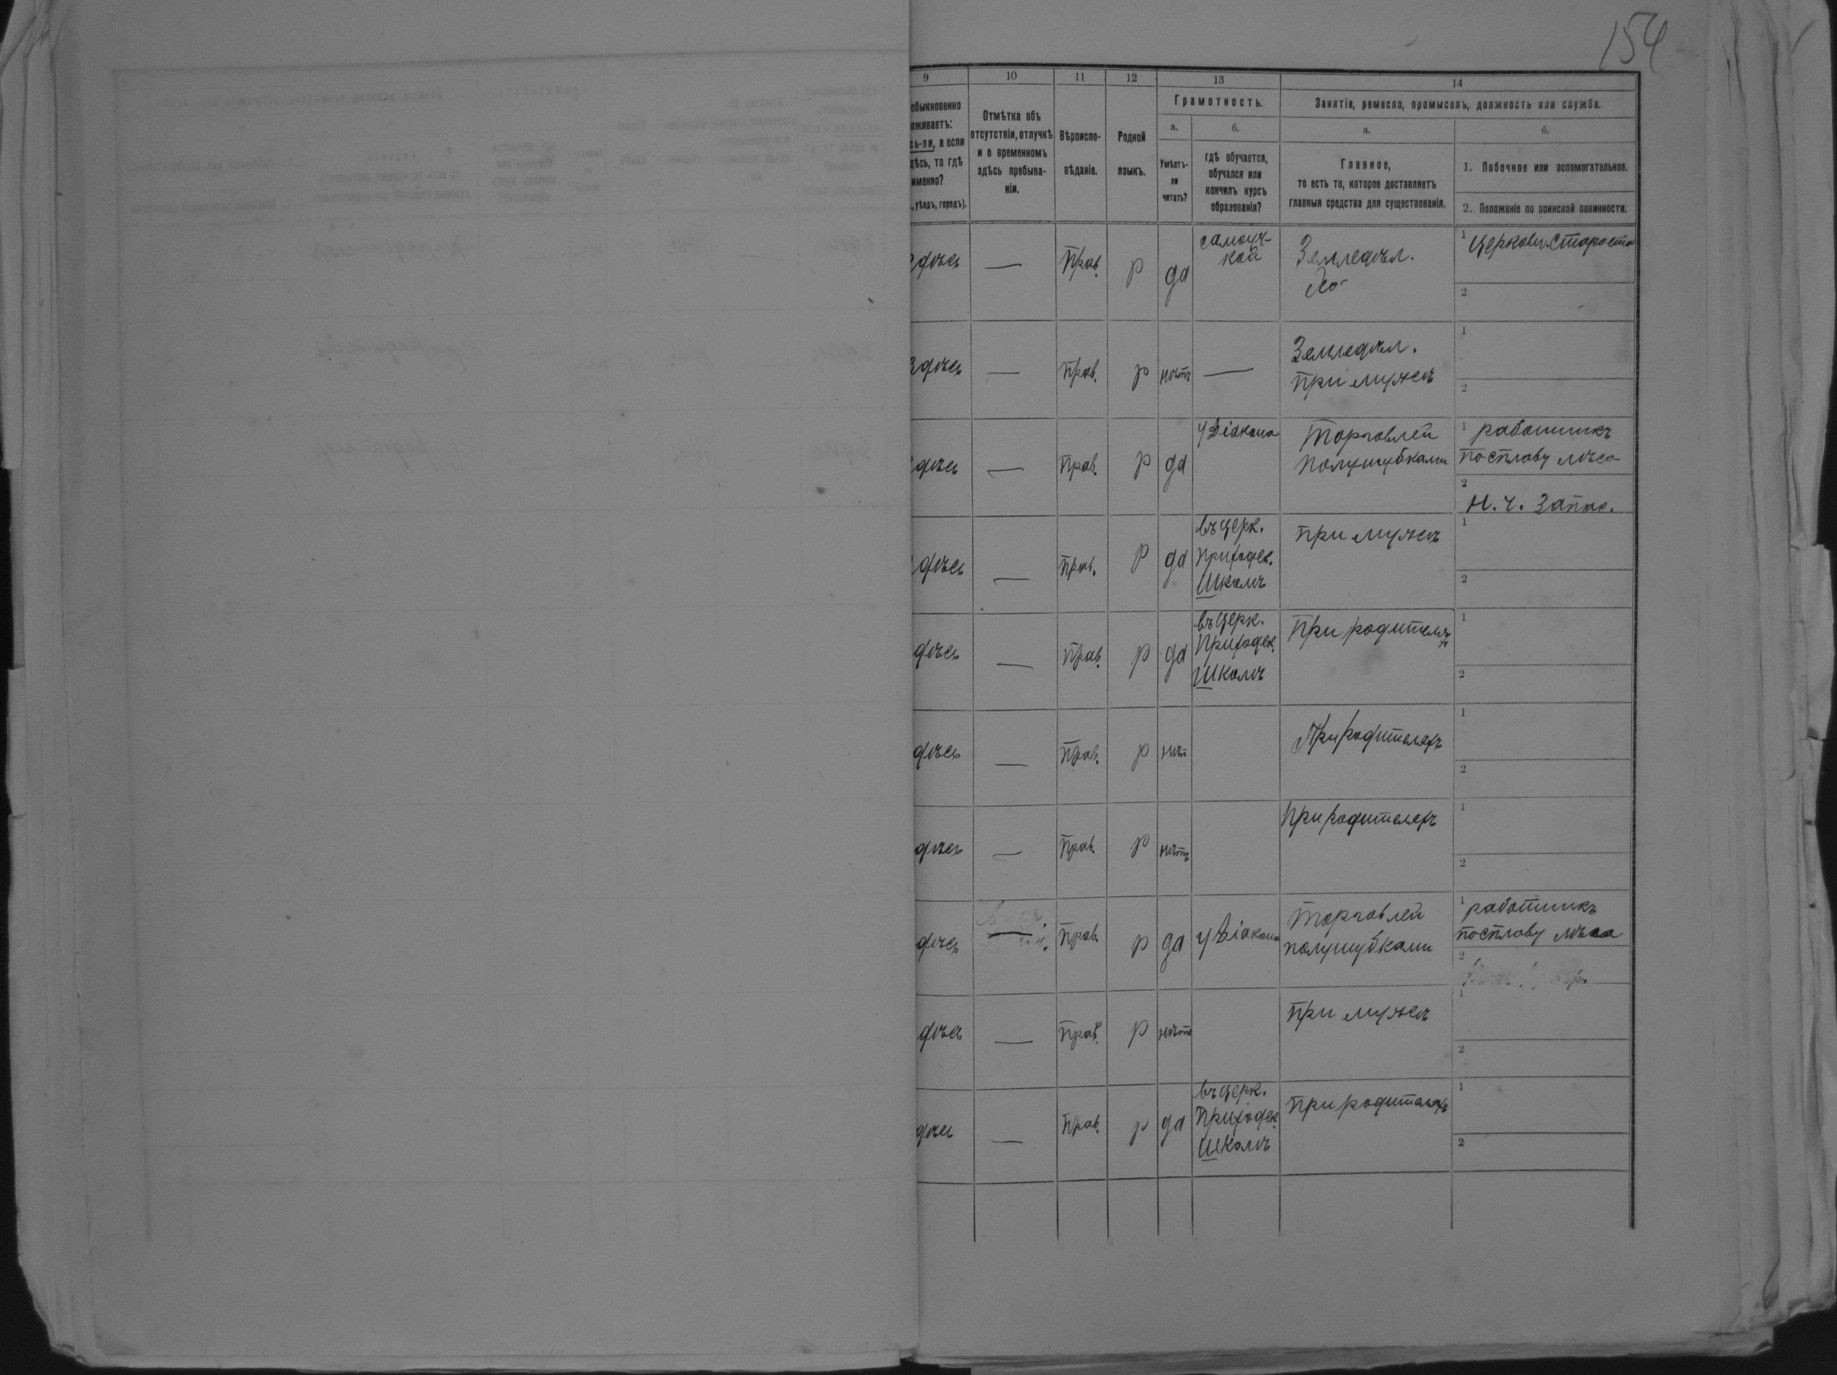 154
9 10 11 12 13 14
обыкновенно
оживаетъ:
сь-ли, а если
дѣсь, то гдѣ
именно?
, уѣздъ, городъ).
Отмѣтка объ
отсутствіи, отлучкѣ
и о временномъ
здѣсь пребыва-
ніи.
Вѣроиспо-
вѣданіе.
Родной
языкъ.
Грамотность.
а.
Умѣетъ-
ли
читать?
б.
гдѣ обучается,
обучался или
кончилъ курсъ
образованія?
Занятіе, ремесло, промыселъ, должность или служба.
а.
Главное,
то есть то, которое доставляетъ
главныя средства для существованія.
б.
1. Побочное или вспомогательное.
2. Положеніе по воинской повинности.
здѣсь — Прав. р да
самоуч-
кой
Земледѣл.
Хо-
1 Церковн. Староста
2
Здѣсь — Прав. р нѣтъ —
Земледѣл.
При мужѣ
1
2
здѣсь — Прав. р да
у Діакона
Торговлей
Полушубками
1 работникъ
по сплаву лѣса
2
Н. ч. Запас.
здѣсь — Прав. р да
въ церк.
Приходск.
Школѣ
При мужѣ
1
2
здѣсь — Прав. р да
въ церк.
Приходск.
Школѣ
При родителяхъ
1
2
здѣсь — Прав. р нѣтъ
При родителяхъ
1
2
здѣсь — Прав. р нѣтъ
При родителяхъ
1
2
здѣсь — Прав. р да у Діакона
Торговлей
полушубками
1 работникъ
по сплаву лѣса
2
здѣсь — Прав. р нѣтъ
При мужѣ
1
2
здѣсь — Прав. р да
въ церк.
Приходск.
Школѣ
При родителяхъ
1
2